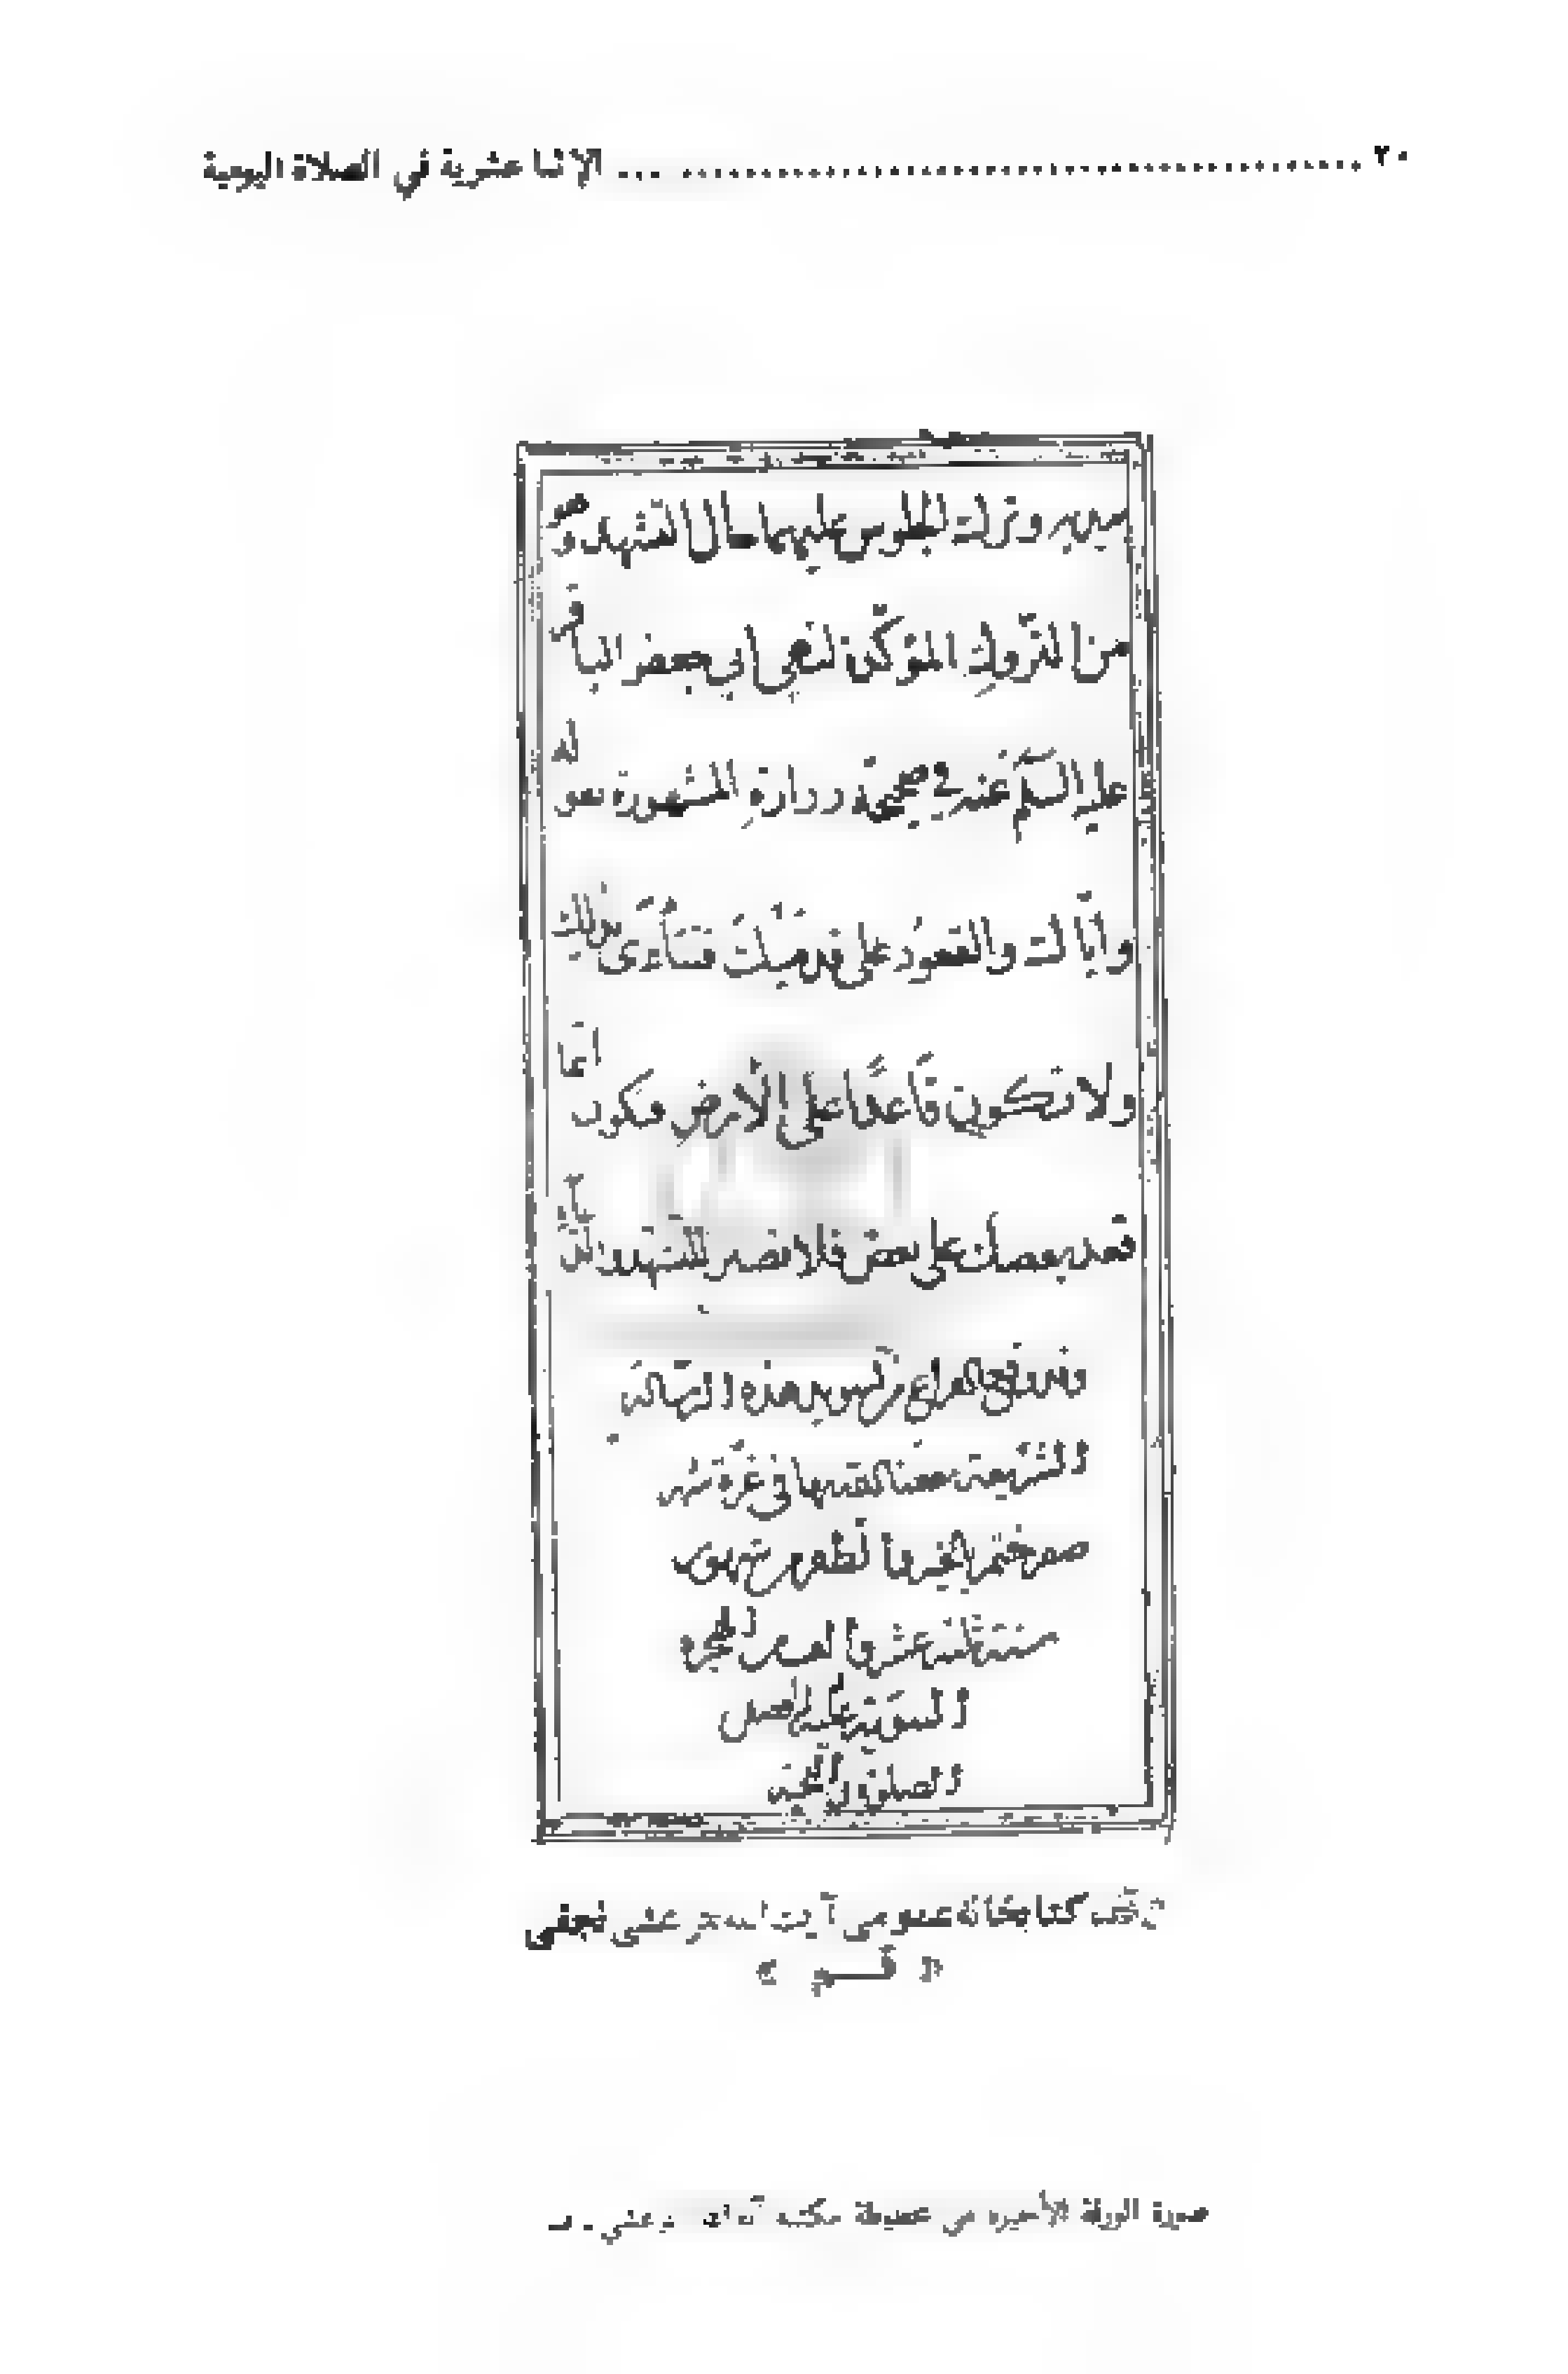 ٢٠ ........................................ الإثنا عشرية في الصلاة اليومية
وترك الجلوس عليهما حال التشهد وهو
من التروك المؤكدة لنهي ابي جعفر الباقر
عليه السلم عنه في صحيحة زرارة المشهورة بقوله
واياك والقعود على قدميك فتتأذى بذلك
ولا تكون قاعدا على الأرض فيكون انما
قعد بعضك على بعض فلا تصبر للتشهد والدعاء
وقد وقع الفراغ من تسويد هذه الرسالة
الشريفة في غرة شهر
صفر ختم بالخير والظفر من شهور
سنة عشر والف من الهجرة
النبوية عليه افضل
الصلوة والتحية
كتابخانه عمومى آيت الله مرعشى نجفى
« قـــم »
صورة الورقة الأخيرة من مكتبة مرعشي